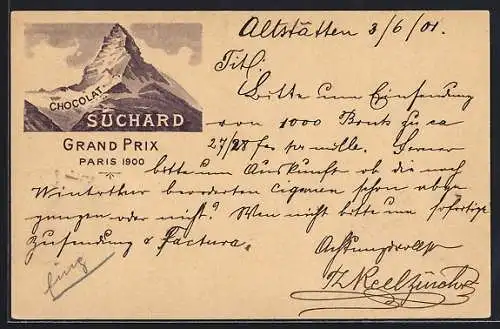 Altstätten 3/6/01.
Titl.
CHOCOLAT
SUCHARD
GRAND PRIX
PARIS 1900
Bitte um Einsendung
von 1000 Bouts zu ca
27/28 fcs per mille. Ferner
bitte um Auskunft ob die nach
Winterthur beorderten Cigarren schon abge
gangen oder nicht? Wenn nicht bitte um sofortige
Zusendung & Factura.
Achtungsvollst